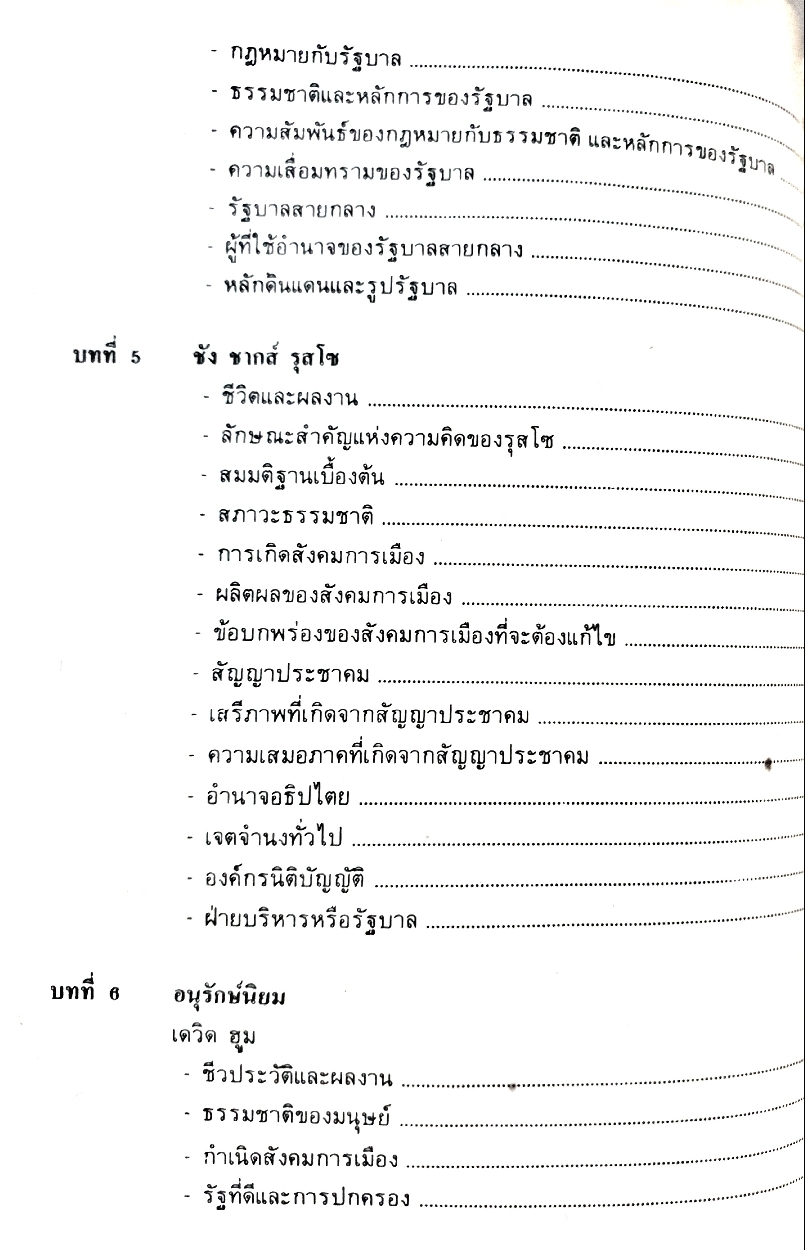 - กฎหมายกับรัฐบาล
- ธรรมชาติและหลักการของรัฐบาล
- ความสัมพันธ์ของกฎหมายกับธรรมชาติ และหลักการของรัฐบาล
- ความเสื่อมทรามของรัฐบาล
- รัฐบาลสายกลาง
- ผู้ที่ใช้อำนาจของรัฐบาลสายกลาง
- หลักดินแดนและรูปรัฐบาล
บทที่ 5 ชัง ชากส์ รุสโซ
- ชีวิตและผลงาน
- ลักษณะสำคัญแห่งความคิดของรุสโซ
- สมมติฐานเบื้องต้น
- สภาวะธรรมชาติ
- การเกิดสังคมการเมือง
- ผลิตผลของสังคมการเมือง
- ข้อบกพร่องของสังคมการเมืองที่จะต้องแก้ไข
- สัญญาประชาคม
- เสรีภาพที่เกิดจากสัญญาประชาคม
- ความเสมอภาคที่เกิดจากสัญญาประชาคม
- อำนาจอธิปไตย
- เจตจำนงทั่วไป
- องค์กรนิติบัญญัติ
- ฝ่ายบริหารหรือรัฐบาล
บทที่ 6 อนุรักษ์นิยม
เดวิด ฮูม
- ชีวประวัติและผลงาน
- ธรรมชาติของมนุษย์
- กำเนิดสังคมการเมือง
- รัฐที่ดีและการปกครอง